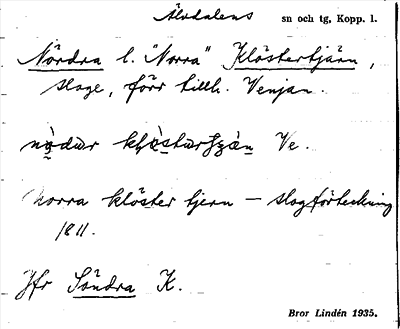 Älvdalens sn och tg, Kopp. l.
Nördra l. "Norra" Klöstertjärn,
sloge, förr tillh. Venjan.
Ve.
Norra klöster tjern – slogförteckning
1811.
Jfr Söndra K.
Bror Lindén 1935.